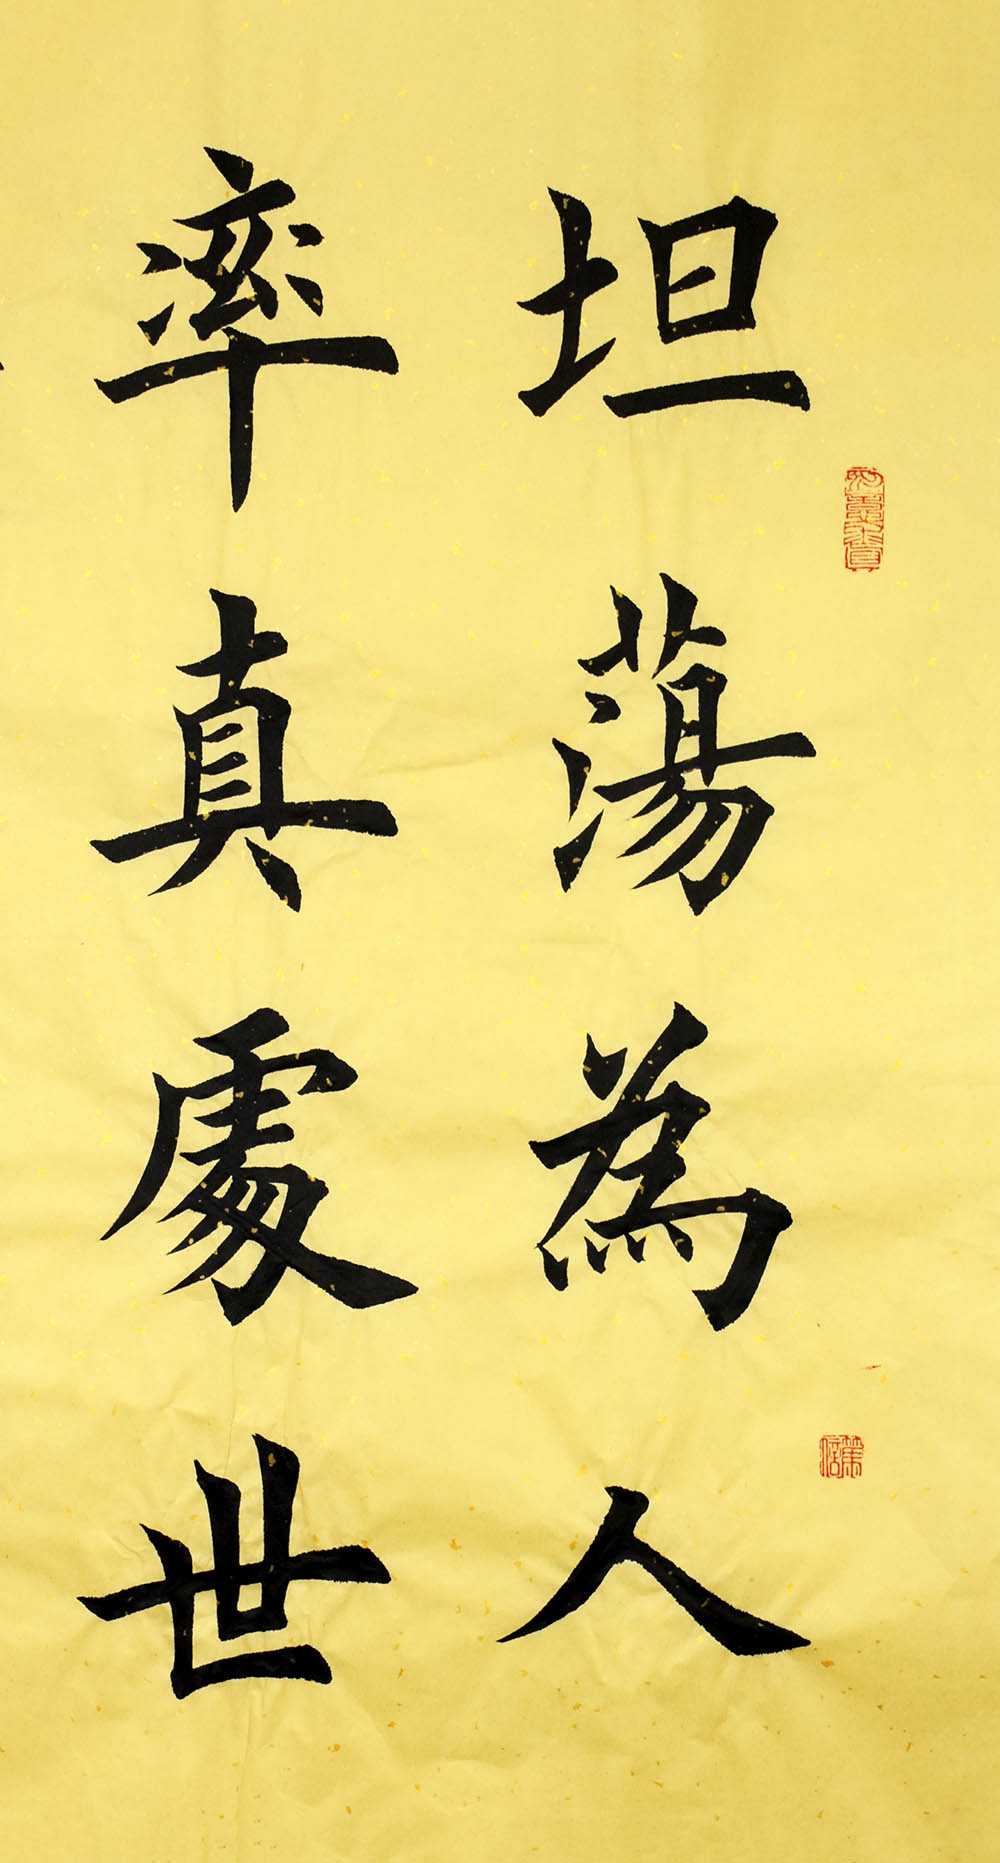 坦蕩為人
率真處世